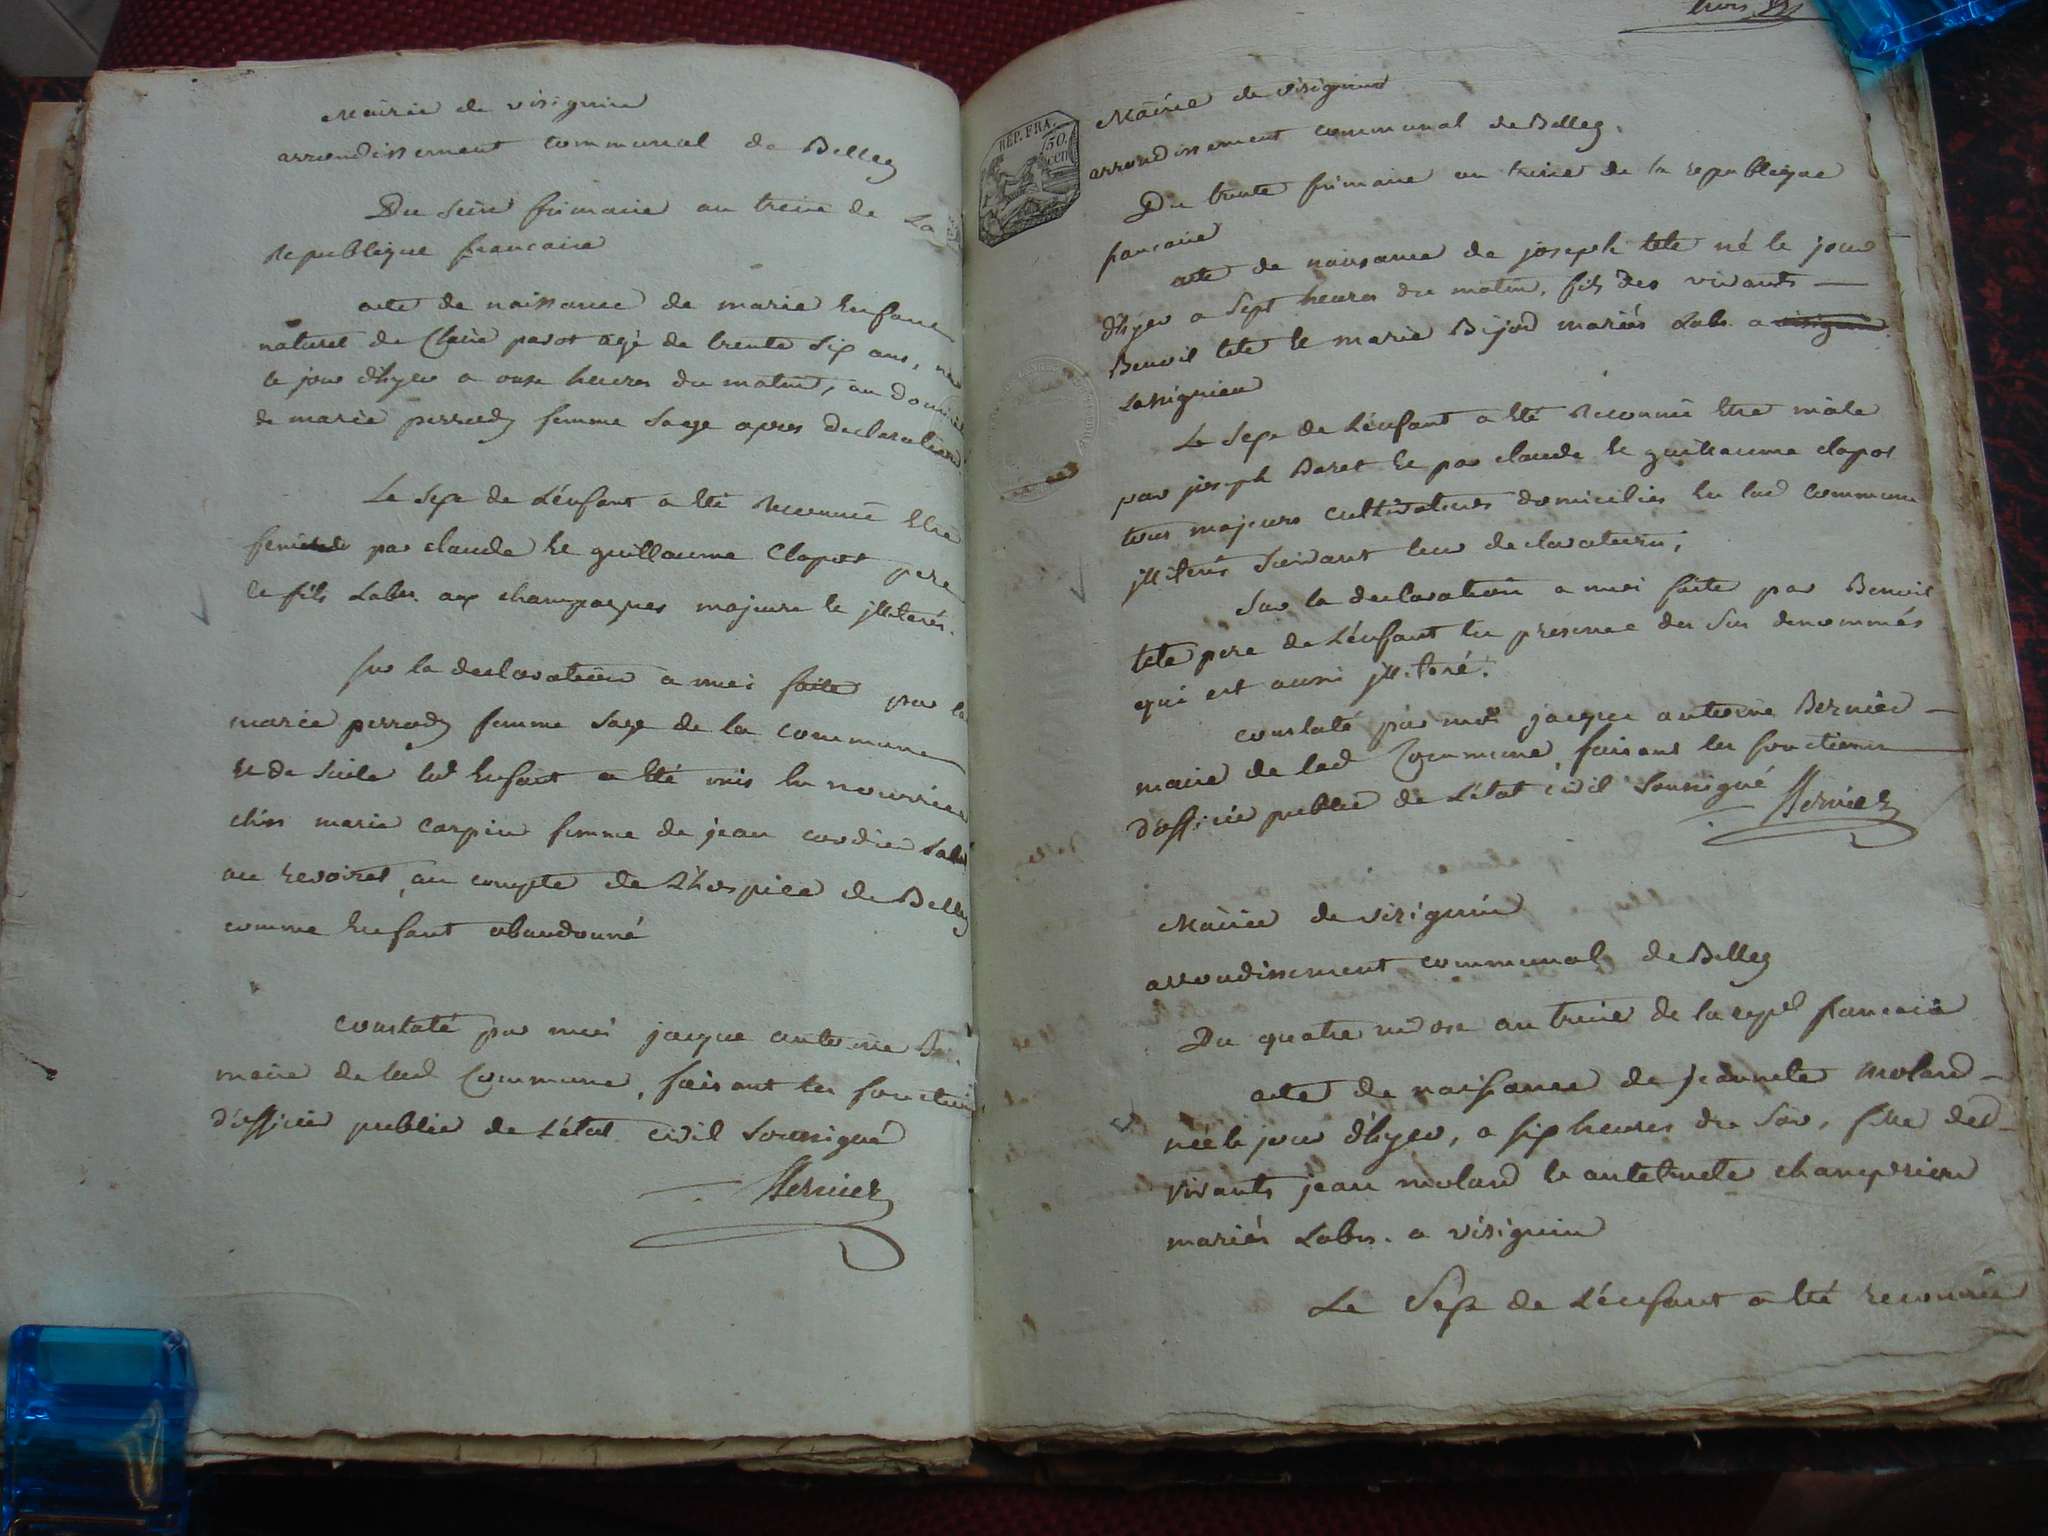 Mairie de virignin
arrondissement communal de Belley
Du seize frimaire an treize de La
Republique francaise
acte de naissance de marie Enfant
naturel de Claire pavot agé de trente six ans, née
le jour d'hyer a onze heures du matin, au domicile
de marie perrody femme sage apres declaration
Le sexe de L'enfant a été Reconnu Etre
par claude Et guillaume Clapot pere
Et fils Labrs. aux champagnes majeurs Et illiterés.
sur la declaration a moi faite par la
marie perrody femme sage de la commune
Et de suite led Enfant a été mis En nourrice
chés marie carpin femme de jean cordier Labr
au revoiret, au compte de L'hospice de Belley
comme Enfant abandonné
constaté par moi jacque antoine
maire de lad Commune, faisant les fonctions
d'officier public de L'état civil soussigné
Bernier
trois
REP. FRA.
50 cen
Mairie de virignin
arrondissement communal de Belley.
Du trente frimaire an treize de la republique
francaise
acte de naissance de joseph tete né le jour
d'hyer a sept heures du matin, fils des vivants
Benoit tete Et marie Bijod mariés Labr. a virignin
Lassignieu
Le sexe de L'enfant a été Reconnu Etre mâle
par joseph Et par claude Et guillaume clapot
tous majeurs cultivateurs domiciliés En lad commune
illiterés suivant leur declaration;
sur la declaration a moi faite par Benoit
tete pere de L'enfant En presence des sus denommés
qui est aussi illiteré.
constaté par moi jacque antoine Bernier
maire de lad Commune, faisant les fonctions
d'officier public de L'état civil soussigné
Bernier
Mairie de virignin
arrondissement communal de Belley
Du quatre nivose an treize de la repl francaise
acte de naissance de jeannete molard
née le jour d'hyer, a six heures du soir, fille des
vivants jean molard Et antelmete
mariés Labrs. a virignin
Le sexe de L'enfant a été reconnu